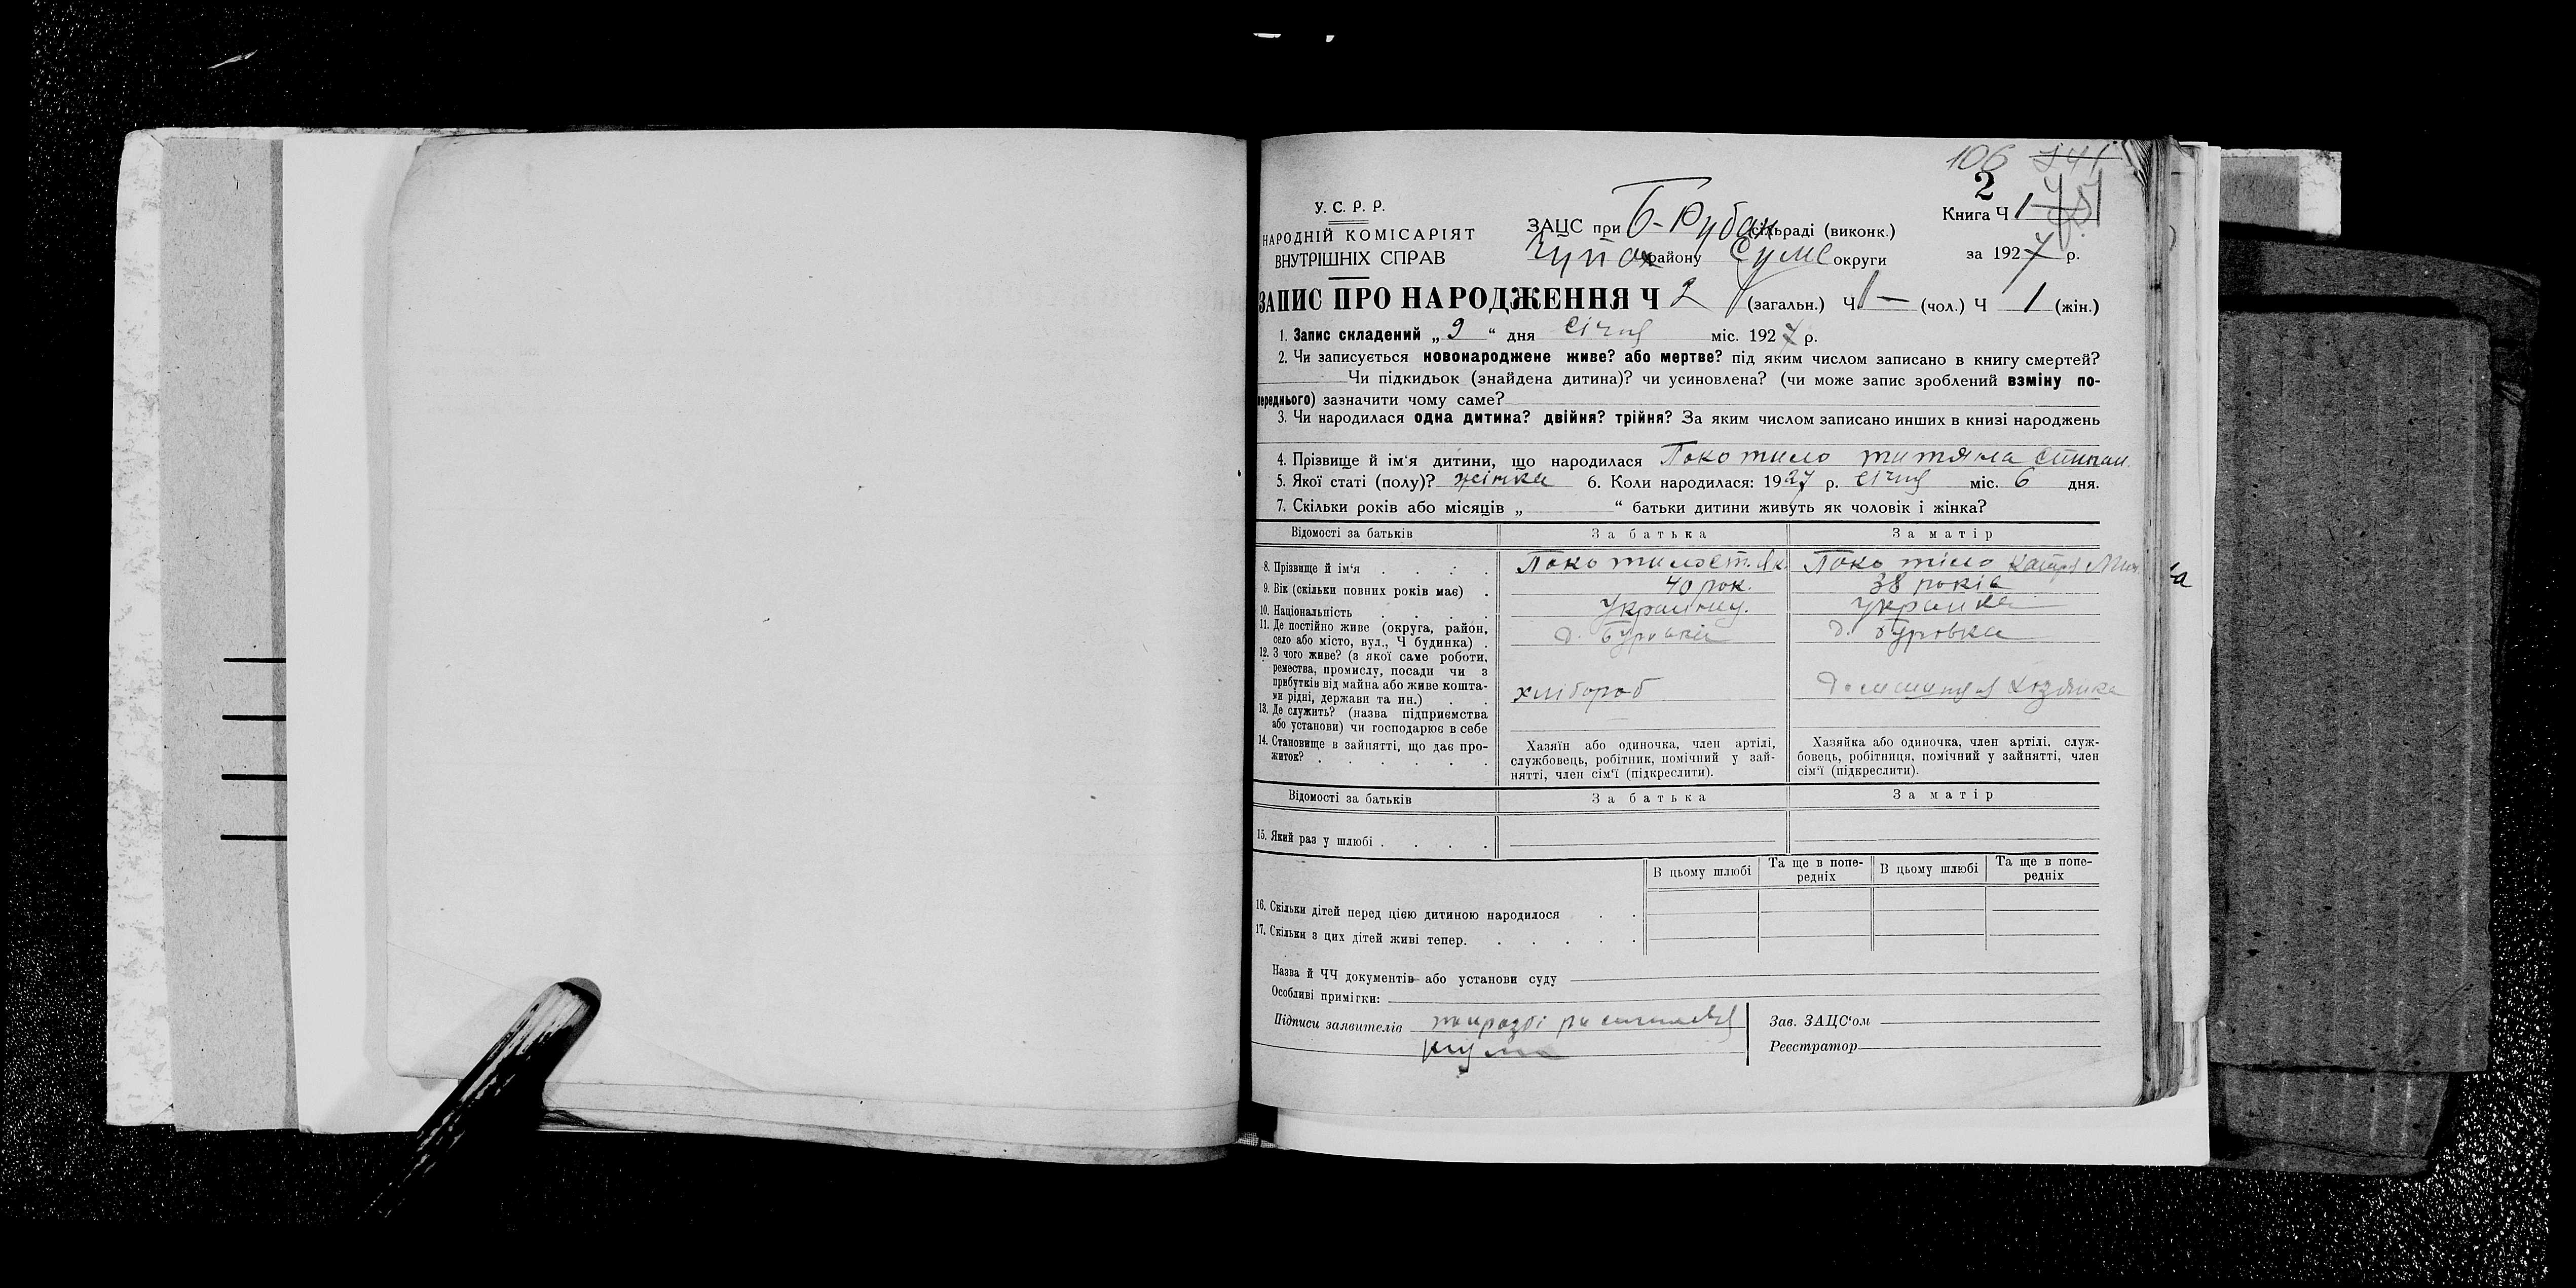 106
2
У. С. Р. Р.
НАРОДНІЙ КОМІСАРІЯТ
ВНУТРІШНІХ СПРАВ
ЗАЦС при Б-Рубан сільраді (виконк.)
Чупах району Суме округи
Книга Ч 1
за 1927 р.
ЗАПИС ПРО НАРОДЖЕННЯ Ч 2 (загальн.) Ч — (чол.) Ч 1 (жін.)
1. Запис складений „ 9 “ дня січня міс. 1927 р.
2. Чи записується новонароджене живе? або мертве? під яким числом записано в книгу смертей?
Чи підкидьок (знайдена дитина)? чи усиновлена? (чи може запис зроблений взміну по-
переднього) зазначити чому саме?
3. Чи народилася одна дитина? двійня? трійня? За яким числом записано инших в книзі народжень
4. Прізвище й ім‘я дитини, що народилася Покотило титяна степан.
5. Якої статі (полу)? жінка 6. Коли народилася: 1927 р. січня міс. 6 дня.
7. Скільки років або місяців „ “ батьки дитини живуть як чоловік і жінка?
Відомості за батьків За батька За матір
8. Прізвище й ім‘я Покотило ст. Як. Покотило
9. Вік (скільки повних років має) 40 рок. 38 років
10. Національність украинка
11. Де постійно живе (округа, район,
село або місто, вул., Ч будинка) д. Буровка
12. З чого живе? (з якої саме роботи,
ремества, промислу, посади чи з
прибутків від майна або живе кошта-
ми рідні, держави та ин.) хлібороб хозяйка
13. Де служить? (назва підприємства
або установи) чи господарює в себе
14. Становище в зайнятті, що дає про-
житок?
Хазяїн або одиночка, член артілі,
службовець, робітник, помічний у зай-
нятті, член сім‘ї (підкреслити).
Хазяйка або одиночка, член артілі, служ-
бовець, робітниця, помічний у зайнятті, член
сім‘ї (підкреслити).
Відомості за батьків За батька За матір
15. Який раз у шлюбі
В цьому шлюбі Та ще в попе-
редніх В цьому шлюбі Та ще в попе-
редніх
16. Скільки дітей перед цією дитиною народилося
17. Скільки з цих дітей живі тепер.
Назва й ЧЧ документів або установи суду
Особливі примітки:
Підписи заявителів
Зав. ЗАЦС‘ом
Реєстратор